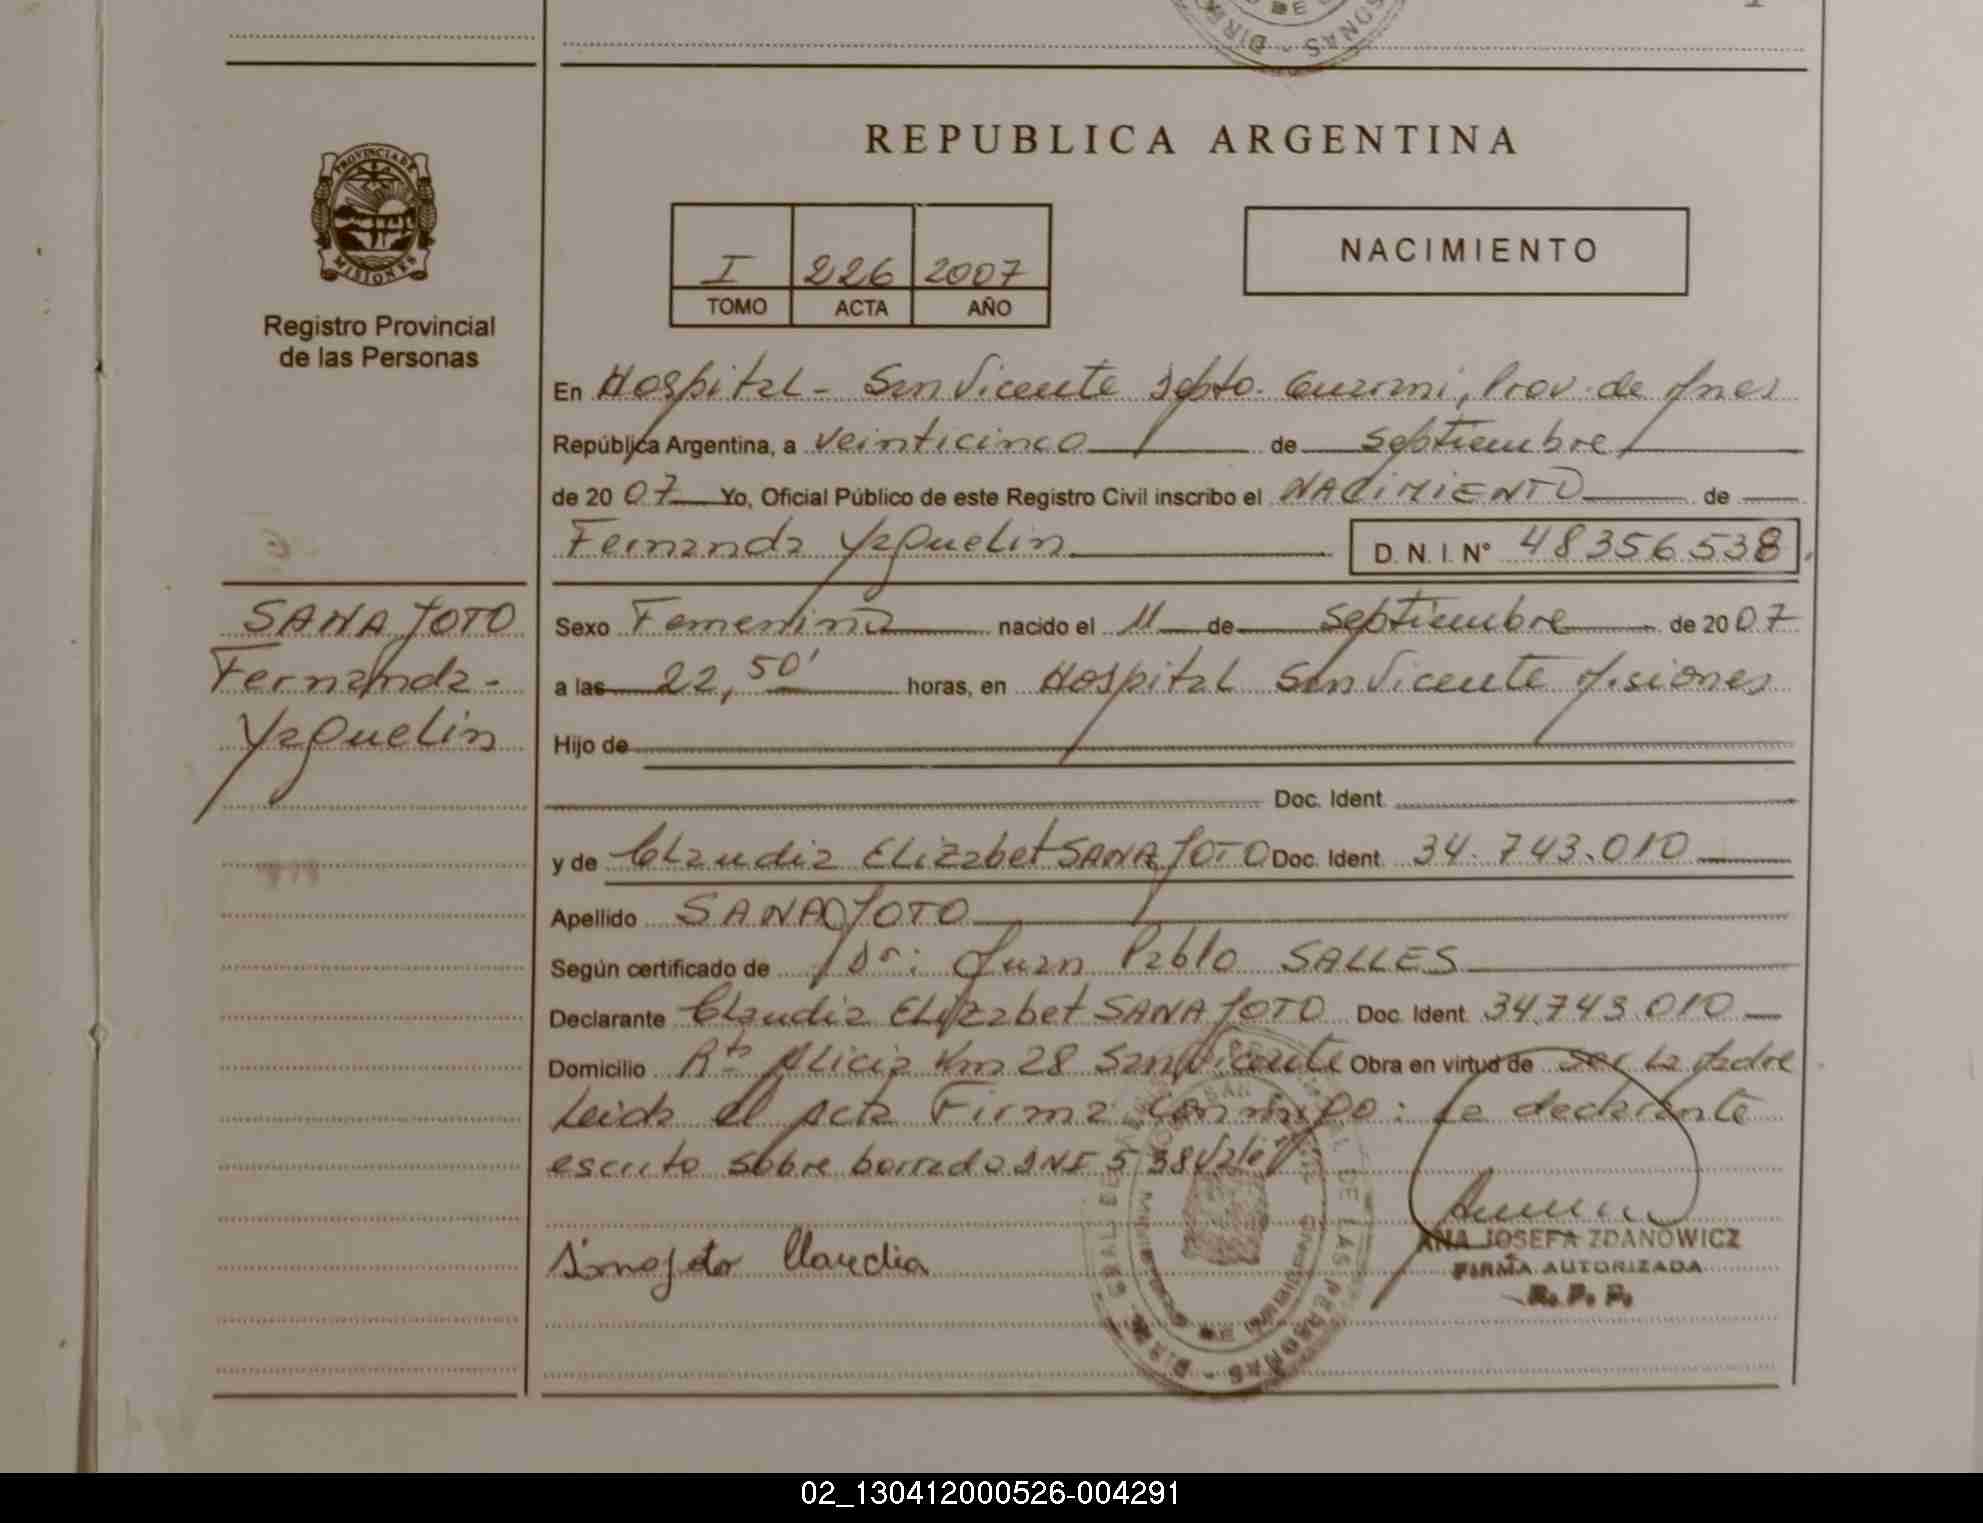 REPUBLICA ARGENTINA
PROVINCIA DE MISIONES
Registro Provincial
de las Personas
I 226 2007
TOMO ACTA AÑO
NACIMIENTO
En Hospital - San Vicente Dpto. Guaraní, Prov. de Mnes
República Argentina, a veinticinco de septiembre
de 2007 Yo, Oficial Público de este Registro Civil inscribo el NACIMIENTO de
Fernanda Yaquelin D. N. I. N° 48356538
SANAJOTO
Fernanda-
Yaquelin
Sexo Femenino nacido el 11 de septiembre de 2007
a las 22,50' horas, en Hospital San Vicente Misiones
Hijo de
Doc. Ident.
y de Claudia Elizabet SANAJOTO Doc. Ident. 34.743.010
Apellido SANAJOTO
Según certificado de Dr: Juan Pablo SALLES
Declarante Claudia Elizabet SANAJOTO Doc. Ident. 34.743.010
Domicilio Rta Alicia Km 28 San Vicente Obra en virtud de ser la Madre
Leida el Acta Firma conmigo: La declarante
escrito sobre borrado DNI 538 Vale
Claudia
ANA JOSEFA ZDANOWICZ
FIRMA AUTORIZADA
R. P. P.
02_130412000526-004291